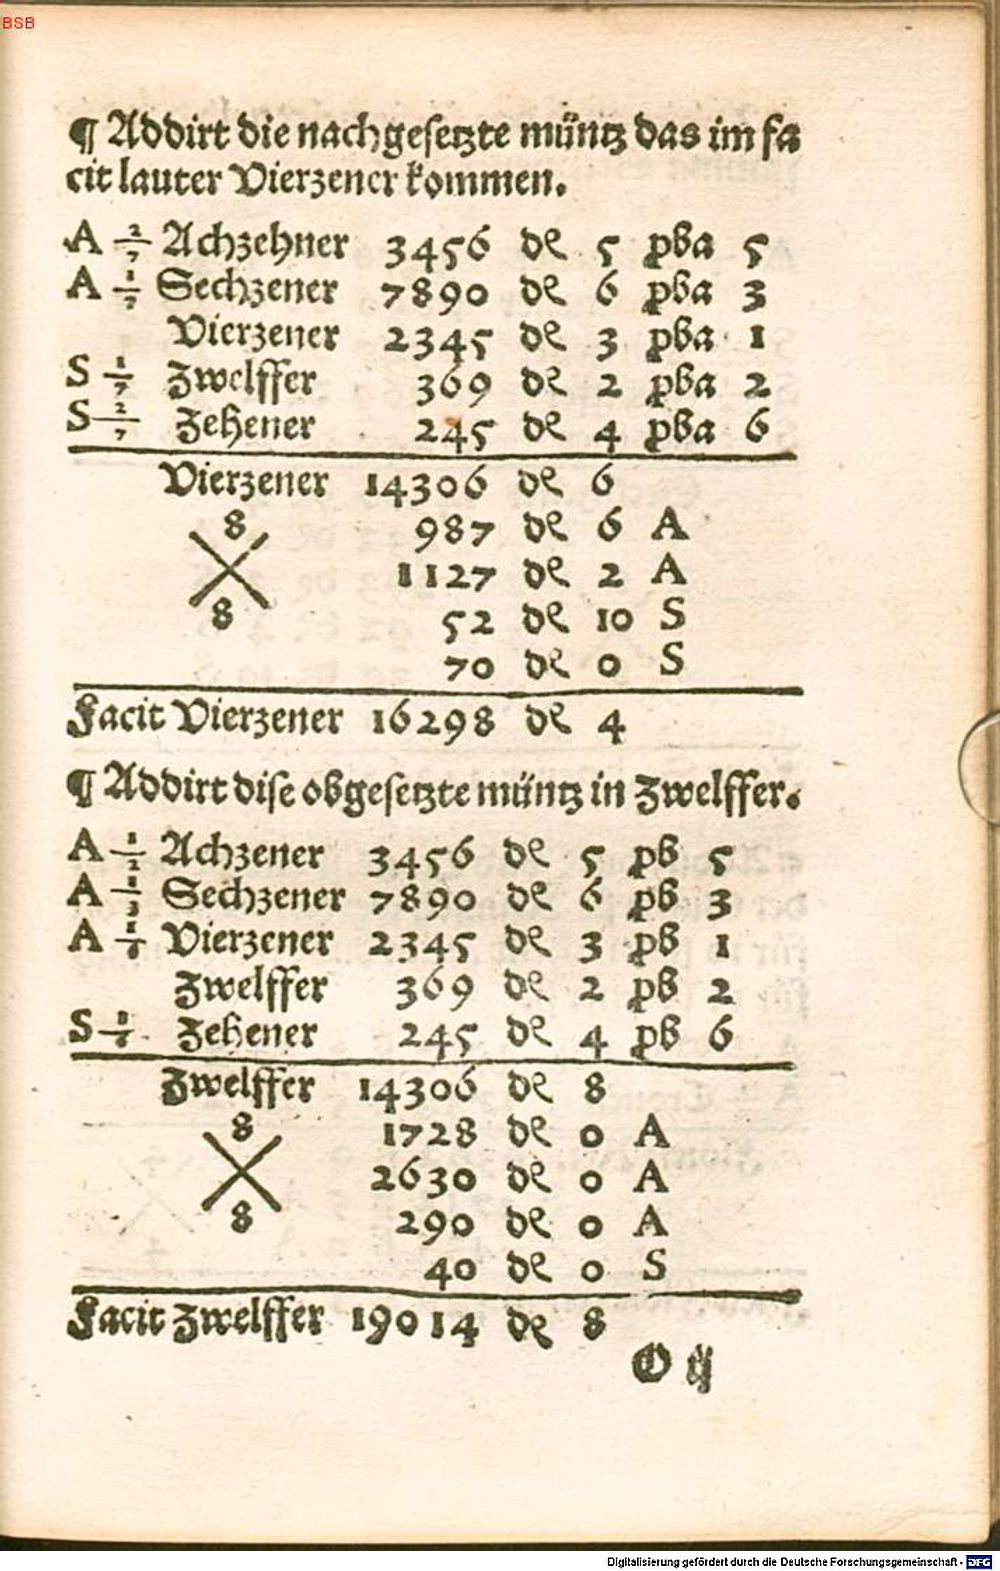 BSB
¶ Addirt die nachgesetzte müntz das im fa
cit lauter Vierzener kommen.
A 2/7 Achzehner 3456 de 5 pba 5
A 1/7 Sechzener 7890 de 6 pba 3
Vierzener 2345 de 3 pba 1
S 1/7 Zwelffer 369 de 2 pba 2
S 2/7 Zehener 245 de 4 pba 6
Vierzener 14306 de 6
8 987 de 6 A
1127 de 2 A
8 52 de 10 S
70 de 0 S
Facit Vierzener 16298 de 4
¶ Addirt dise obgesetzte müntz in Zwelffer.
A 1/2 Achzener 3456 de 5 pb 5
A 1/3 Sechzener 7890 de 6 pb 3
A 1/6 Vierzener 2345 de 3 pb 1
Zwelffer 369 de 2 pb 2
S 1/6 Zehener 245 de 4 pb 6
Zwelffer 14306 de 8
8 1728 de 0 A
2630 de 0 A
8 290 de 0 A
40 de 0 S
Facit Zwelffer 19014 de 8
O ij
Digitalisierung gefördert durch die Deutsche Forschungsgemeinschaft - DFG